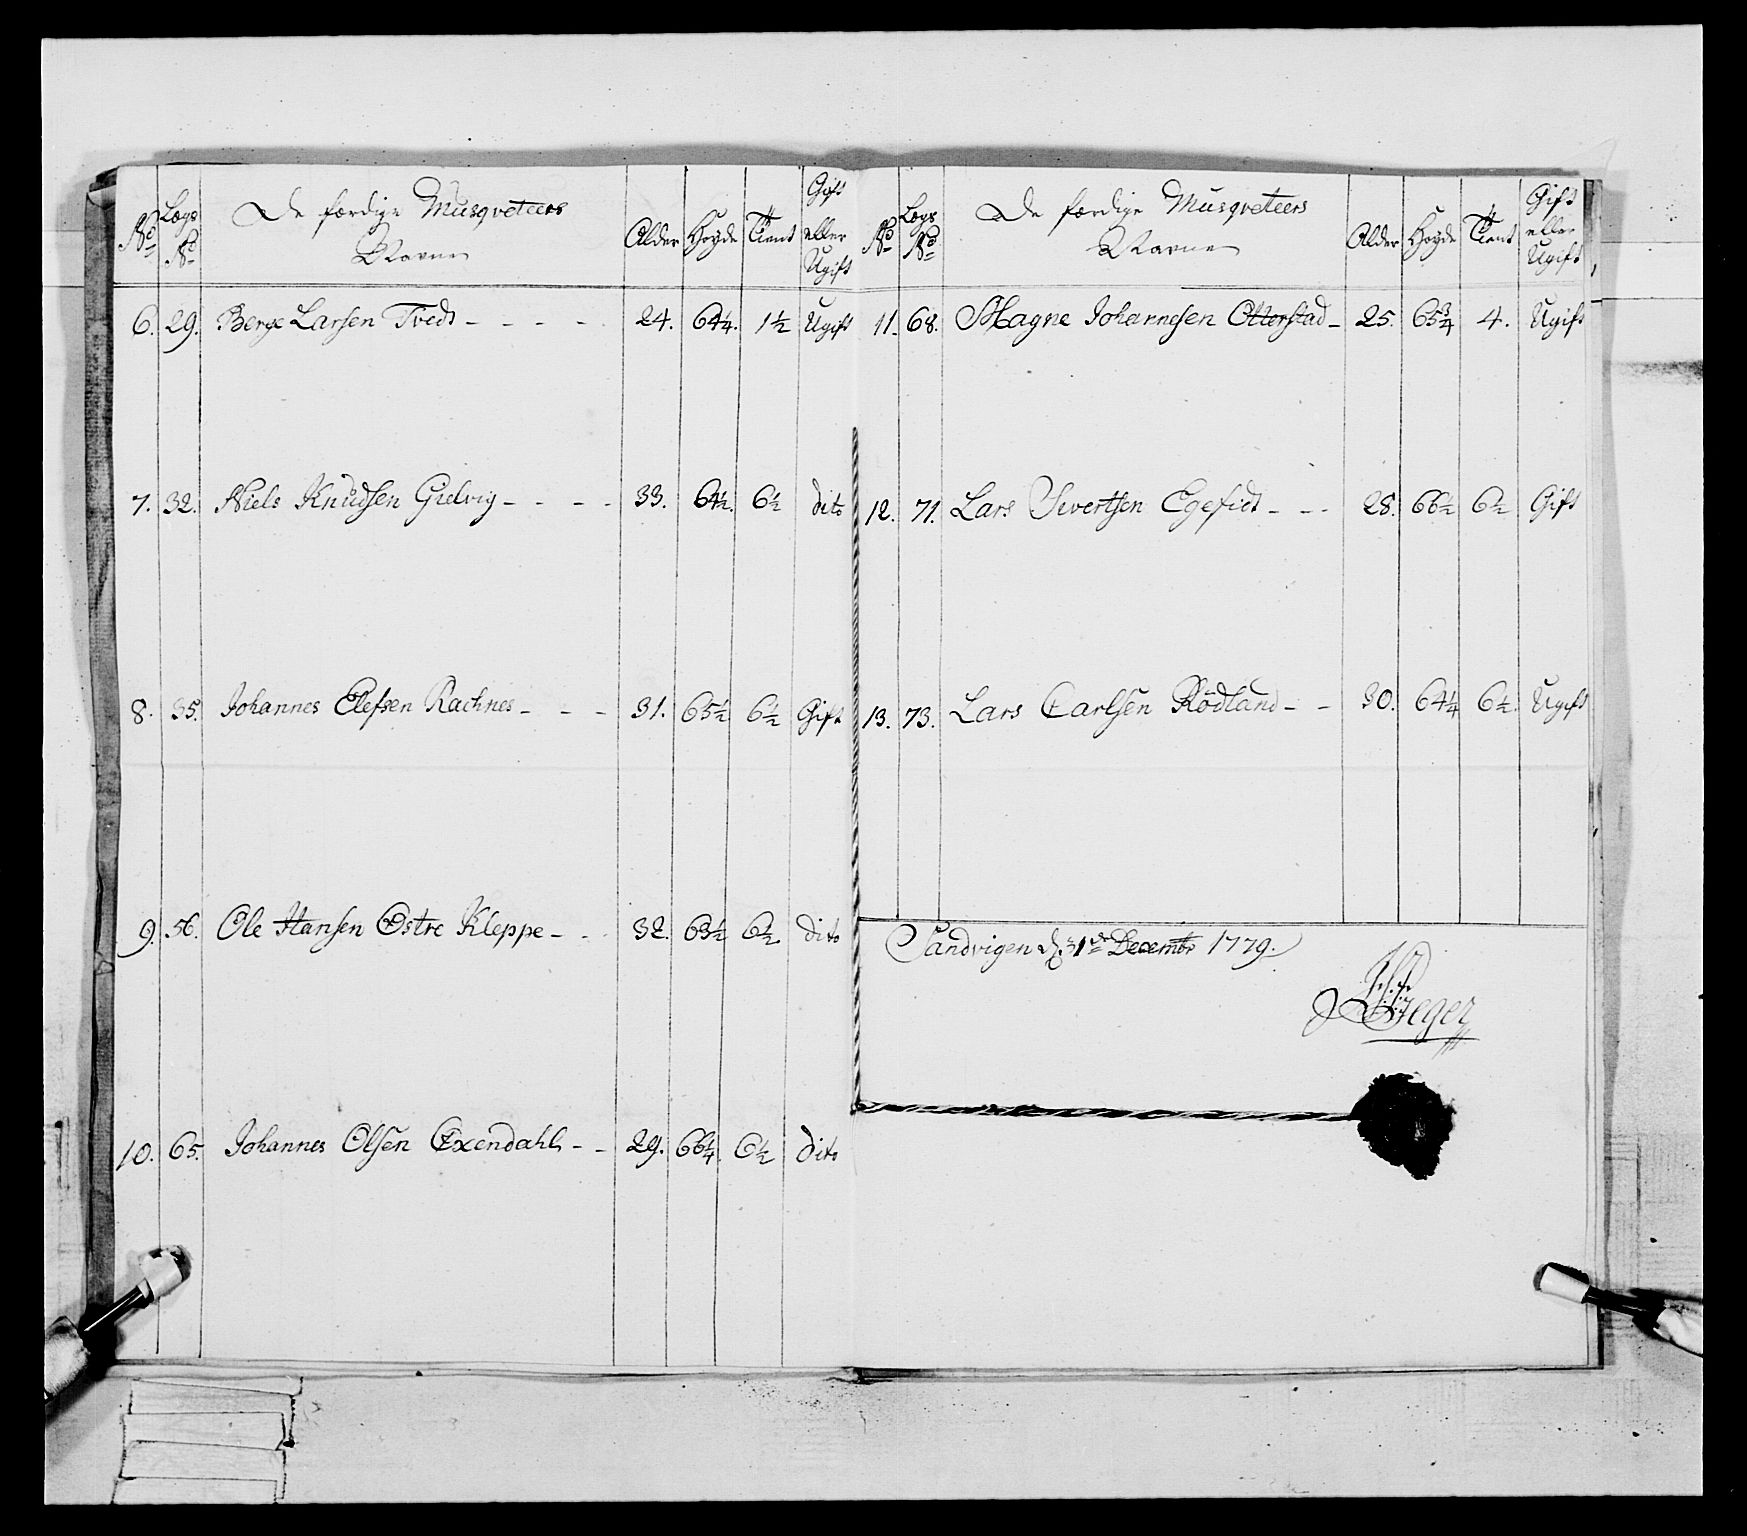 No Lægs No De færdige Musqveteers Navne Alder Høyde Tient Gift eller Ugift
6. 29. Berge Larsen Tvedt - - - - 24. 64¼. 1½ Ugift
7. 32. Niels Knudsen Gielvig - - - - 33. 64½. 6½ dito
8. 35. Johannes Elefsen Rachnes - - - 31. 65½ 6½ Gift
9. 56. Ole Hansen Østre Kleppe - - - 32. 63½ 6½ dito
10. 65. Johannes Olsen Exendahl - - 29. 66¼. 6½ dito
No Lægs No De færdige Musqveteers Navne Alder Høyde Tient Gift eller Ugift
11. 68. Magne Johannesen Otterstad - 25. 65¾ 4. Ugift
12. 71. Lars Sivertsen Egefidt - - - 28. 66½ 6½ Gift
13. 73. Lars Carlsen Rødland - - 30. 64¼ 6½ Ugift
Sandvigen d. 31te Decembr 1779.